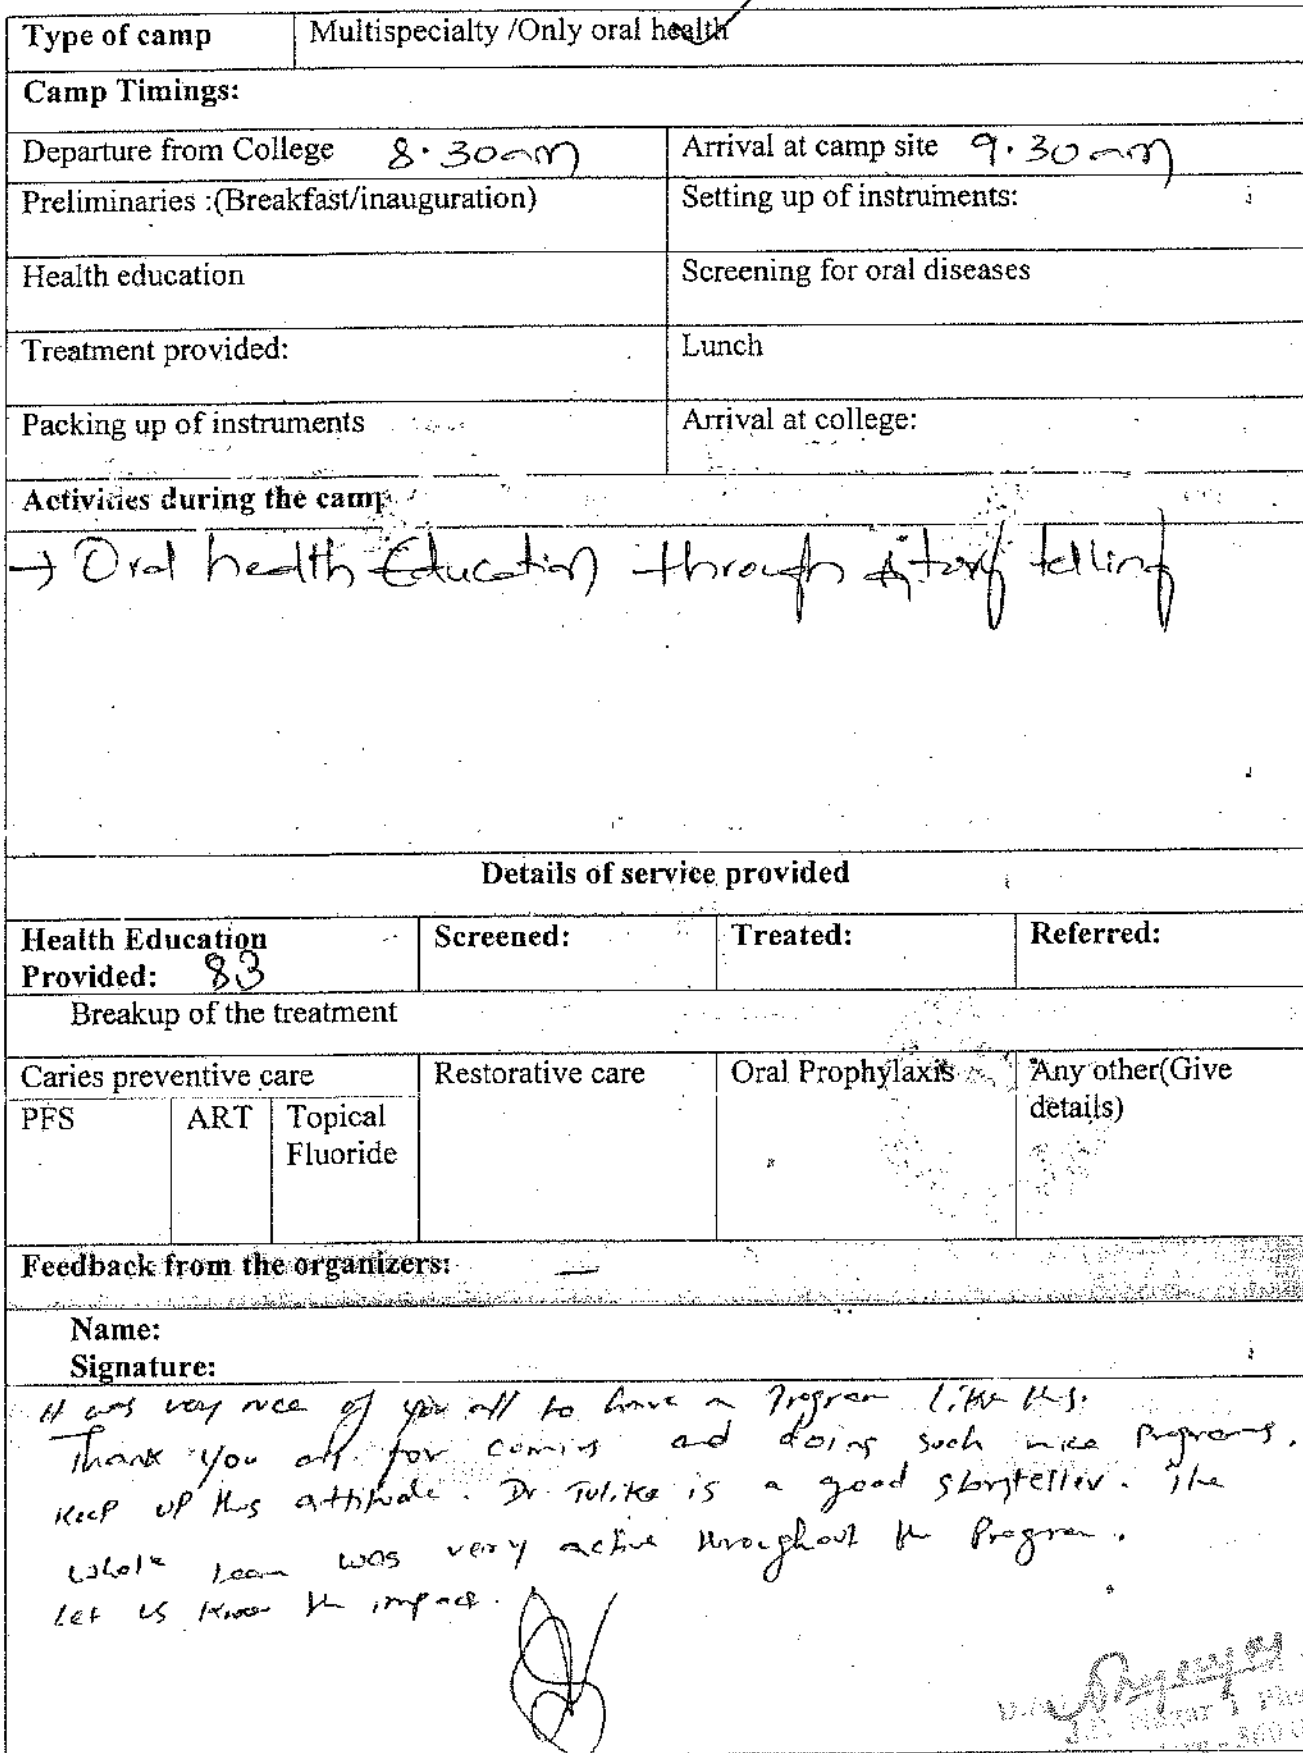 Type of camp Multispecialty /Only oral health
Camp Timings:
Departure from College 8.30am Arrival at camp site 9.30am
Preliminaries :(Breakfast/inauguration) Setting up of instruments:
Health education Screening for oral diseases
Treatment provided: Lunch
Packing up of instruments Arrival at college:
Activities during the camp
→ Oral health Education through story telling
Details of service provided
Health Education Screened: Treated: Referred:
Provided: 83
Breakup of the treatment
Caries preventive care Restorative care Oral Prophylaxis Any other(Give
details)
PFS ART Topical
Fluoride
Feedback from the organizers: —
Name:
Signature:
It was very nice of you all to have a Program like this.
Thank you all for coming and doing such nice Programs.
Keep up this attitude. Dr. Tulika is a good storyteller. The
whole team was very active throughout the Program.
Let us know the impact.
Nagar